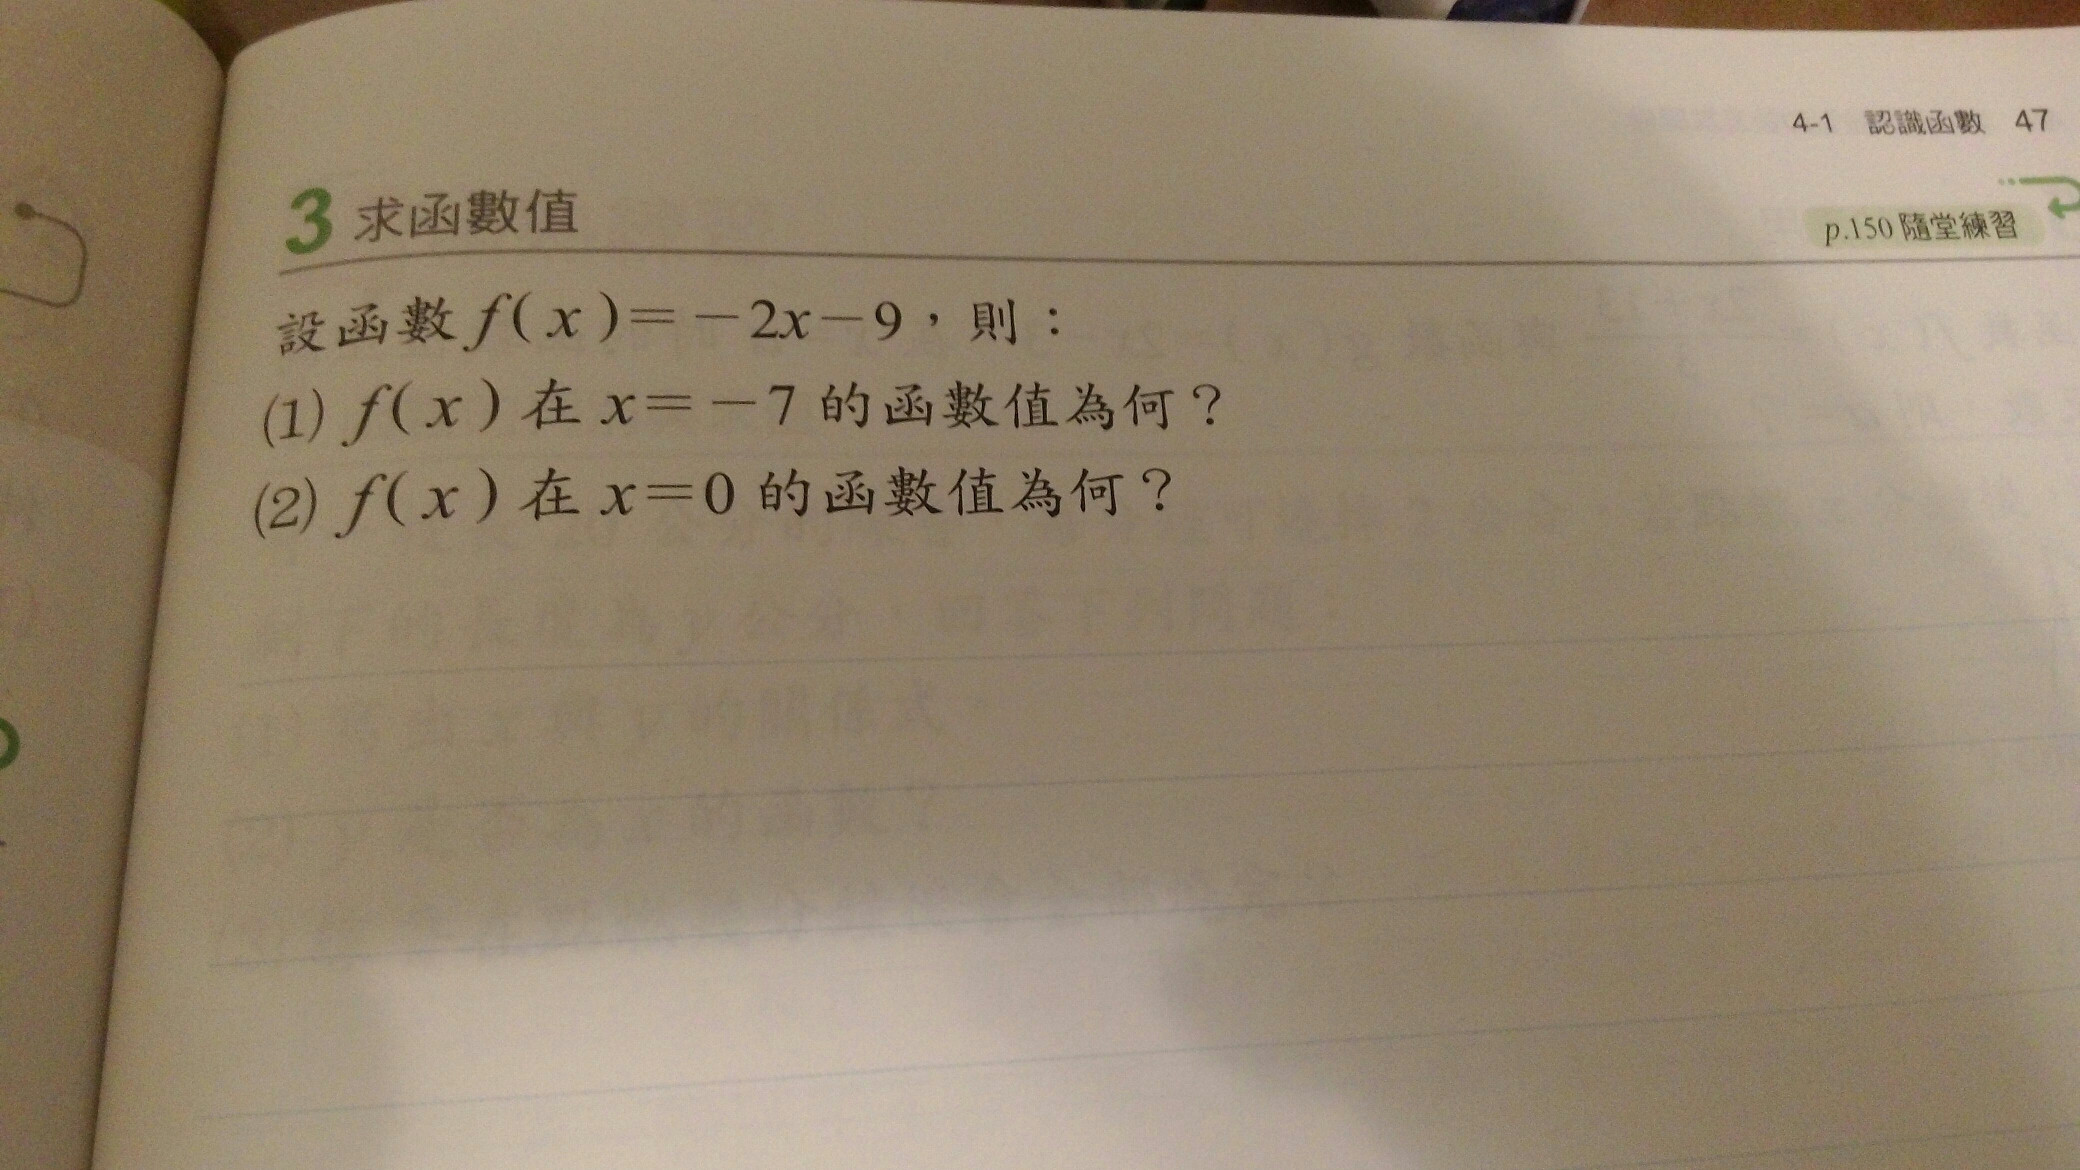 4-1 認識函數 47
3 求函數值
p.150 隨堂練習
設函數 f(x)=-2x-9，則：
(1) f(x) 在 x=-7 的函數值為何？
(2) f(x) 在 x=0 的函數值為何？